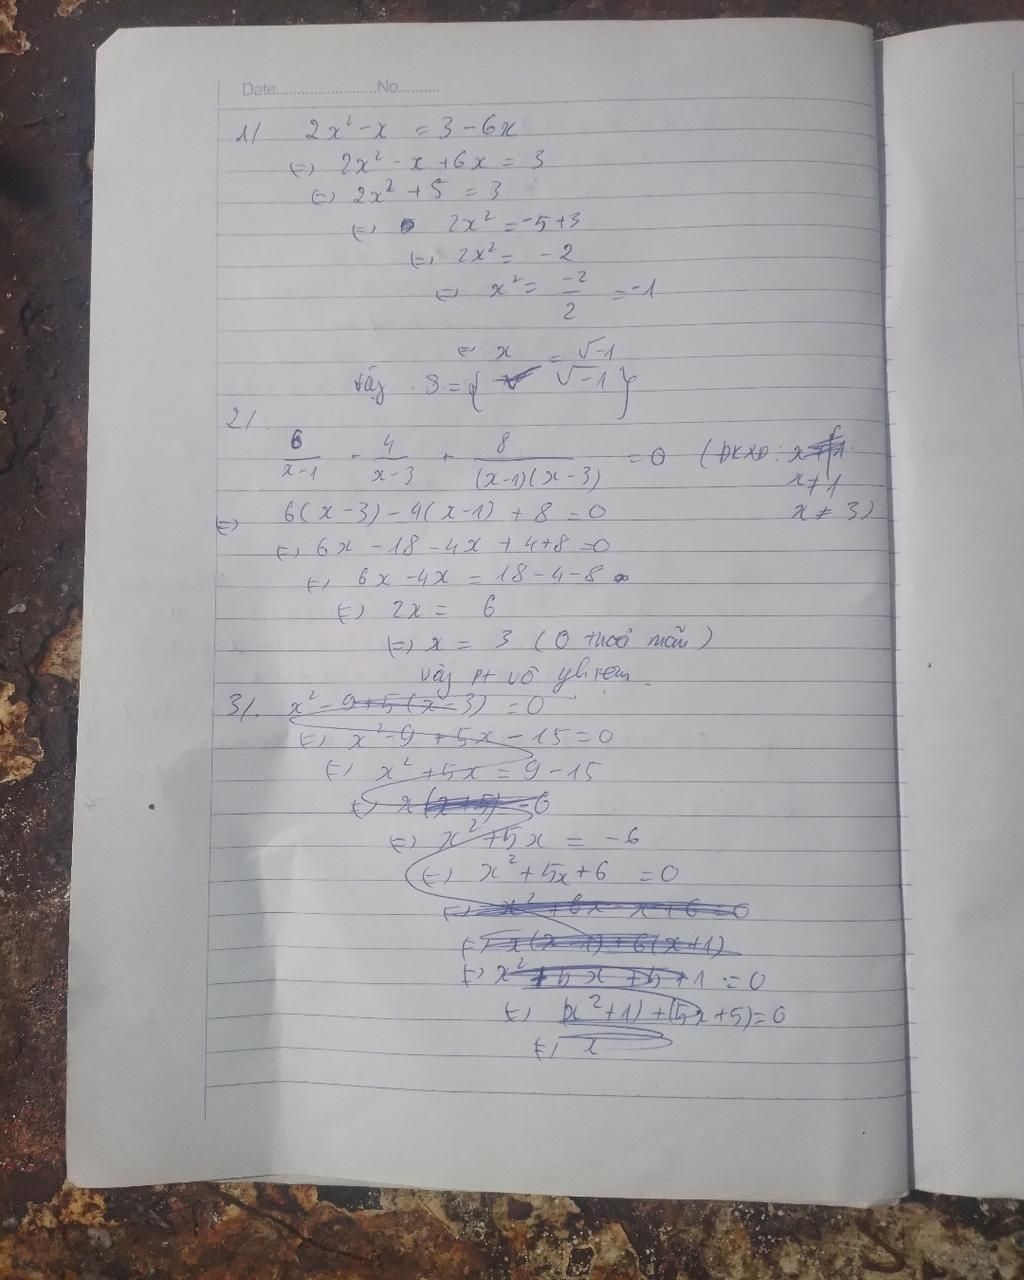 Date.........................No..........
1/ 2x² - x = 3 - 6x
⇔ 2x² - x + 6x = 3
⇔ 2x² + 5 = 3
⇔ 2x² = -5+3
⇔ 2x² = -2
⇔ x² = -2/2 = -1
⇔ x = √-1
Vậy S = { √-1 }
2/.
6/(x-1) - 4/(x-3) + 8/((x-1)(x-3)) = 0 (ĐKXĐ: x≠1
x≠3)
⇔ 6(x-3) - 4(x-1) + 8 = 0
⇔ 6x - 18 - 4x + 4+8 = 0
⇔ 6x - 4x = 18 - 4 - 8
⇔ 2x = 6
⇔ x = 3 (0 thoả mãn)
Vậy pt vô nghiệm.
3/. x² - 9 + 5(x-3) = 0
⇔ x² - 9 + 5x - 15 = 0
⇔ x² + 5x = 9 - 15
⇔ x(x+5) = 6
⇔ x² + 5x = -6
⇔ x² + 5x + 6 = 0
⇔ x² + 6x - x + 6 = 0
⇔ x(x-1) + 6(x+1)
⇔ x² + 5x + 5 + 1 = 0
⇔ (x² + 1) + (5x + 5) = 0
⇔ x